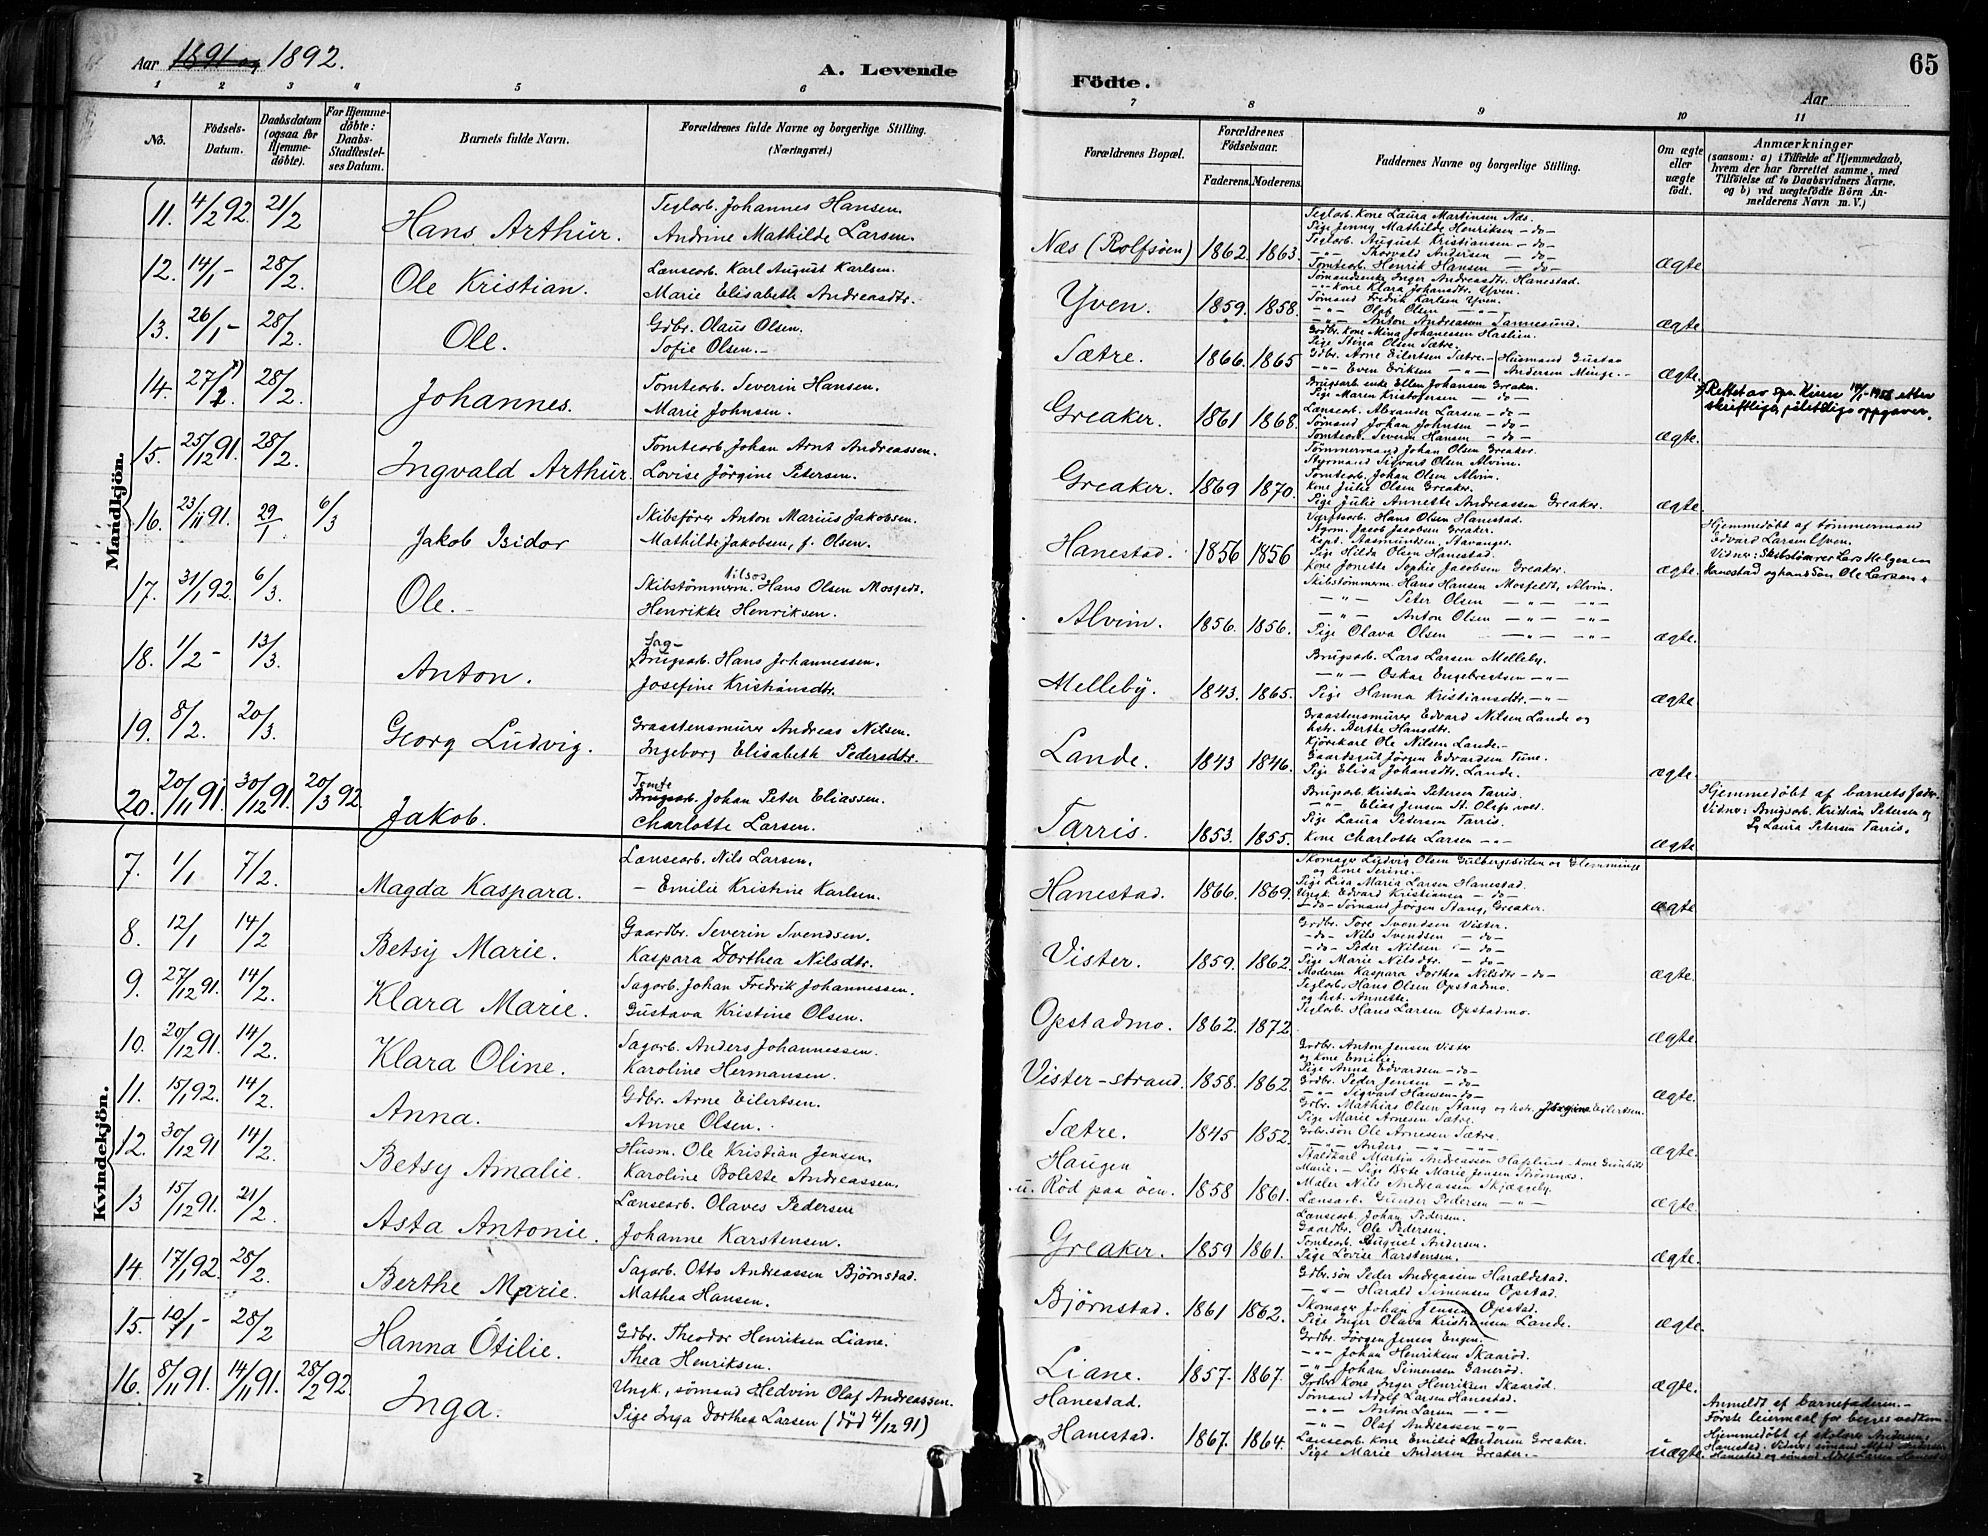 Aar 1891 og 1892.
A. Levende
Födte.
Aar
65
1 2 3 4 5 6 7 8 9 10 11
No.
Födsels-Datum.
Daabsdatum (ogsaa for Hjemmedöbte).
For Hjemmedöbte: Daabs-Stadfæstelses Datum.
Barnets fulde Navn.
Forældrenes fulde Navne og borgerlige Stilling. (Næringsvei.)
Forældrenes Bopæl.
Forældrenes Födselsaar.
Faderens. Moderens.
Faddernes Navne og borgerlige Stilling.
Om ægte eller uægte födt.
Anmærkninger
(saasom: a) i Tilfælde af Hjemmedaab, hvem der har forrettet samme, med Tilföielse af to Daabsvidners Navne, og b) ved uægtefödte Börn Anmelderens Navn m. V.)
Mandkjön.
11. 4/2 92. 21/2 Hans Arthur. Teglarb. Johannes Hansen. Andrine Mathilde Larsen. Næs (Rolfsöen) 1862. 1863.
Teglarb. kone Laura Martinsen Næs.
Pige Jenny Mathilde Henriksen - do -
Teglarb. August Kristiansen - do -
-"- Thorvald Andersen - do -
Tomtearb. Henrik Hansen - do - ægte
12. 14/1 - 28/2. Ole Kristian. Lænsearb. Karl August Karlsen. Marie Elisabeth Andreasdtr. Yven. 1859. 1858.
Sømandsenke Inger Andreasdtr. Hanestad.
-"- kone Klara Johansdtr. Yven.
Sømand Fredrik Karlsen Yven.
-"- Olaf Olsen -"-
-"- Anton Andreasen Tannesund. ægte
13. 26/1 - 28/2. Ole. Gdbr. Olaus Olsen. Sofie Olsen. - Sætre. 1866. 1865
Grdbr. kone Mina Johanessen Haslem.
Pige Stina Olsen Sætre.
Gdbr. Arne Eilertsen Sætre. - Husmand Gustav
-"- Even Eriksen -"- Andersen Minge. - ægte.
14. 27/1 28/2. Johannes. Tomtearb. Severin Hansen. Marie Johnsen. Greaker. 1861 1868.
Brugsarb. enke Ellen Johansen Greaker.
Pige Maren Kristofersen - do -
Lænsearb. Alexander Larsen - do -
Sømand Johan Johnsen - do -
Tomtearb. Severin Hansen - do - ægte.
Rettet av spr. etter
skriftlige, pålitelige oppgaver.
15. 25/12 91. 28/2. Ingvald Arthur. Tomtearb. Johan Arnt Andreassen. Lovise Jörgine Petersen. Greaker. 1869 1870.
Tömmermand Johan Olsen Greaker.
Styrmand Sigvart Olsen Alvim.
Tomtearb. Johan Olsen Alvim.
Kone Julie Olsen Greaker.
Pige Julie Annette Andreassen Greaker. ægte
16. 23/11 91. 29/1 6/3 Jakob Isidor Skibsförer Anton Marius Jakobsen. Mathilde Jakobsen, f. Olsen. Hanestad. 1856 1856
Værftsarb. Hans Olsen Hanestad.
Styrm. Jacob Jacobsen Greaker.
Kapt. Aasmundsen, Stavanger.
Pige Hilda Olsen Hanestad.
Kone Jonette Sophie Jacobsen Greaker. ægte.
Hjemmedøbt af tømmermand
Edvard Larsen Yven.
Vidner: Skibstømrer Lars Helgesen
Hanestad og hans Søn Ole Larsen.
17. 31/1 92. 6/3. Ole. - Skibstömmerm. Hans Olsen Mosfedt. Henrikke Henriksen. Alvim. 1856. 1856.
Skibstømmerm. Hans Hansen Mosfeldt, Alvim.
-"- Peter Olsen -"- -"-
-"- Anton Olsen -"- -"-
Pige Olava Olsen -"- -"- ægte.
18. 1/2 - 13/3. Anton. Sag- Brugsarb. Hans Johannessen. Josefine Kristiansdtr. Melleby. 1843. 1865.
Brugsarb. Lars Larsen Melleby.
-"- Oskar Engebretsen -"-
Pige Hanna Kristiansdtr. -"- ægte
19. 8/2. 20/3. Georg Ludvig. Graastensmurer Andreas Nilsen. Ingeborg Elisabeth Pedersdtr. Lande. 1843 1846.
Graastensmurer Edvard Nilsen Lande og
hstr. Berthe Hansdtr.
Kjørekarl Ole Nilsen Lande. -
Gaardsgut Jörgen Edvardsen Tune.
Pige Elisa Johansdtr. Lande. ægte.
20. 20/11 91. 30/12 91. 20/3 92. Jakob. Tomte Brugsarb. Johan Peter Eliassen. Charlotte Larsen. Tarris. 1853. 1855.
Brugsarb. Kristian Petersen Tarris.
-"- Elias Jensen St. Olafs vold.
Pige Laura Pedersen Tarris.
Kone Charlotte Larsen -"- ægte
Hjemmedøbt af barnets fader.
Vidner: Brugsarb. Kristian Petersen og
Pg. Laura Petersen Tarris.
Kvindekjön.
7. 1/1 7/2. Magda Kaspara. Lænsearb. Nils Larsen. - Emilie Kristine Karlsen. Hanestad. 1866. 1869.
Skomager Ludvig Olsen Gulbergssiden og Glemminge
og kone Serine. -
Pige Lisa Maria Larsen Hanestad.
Ungk. Edvard Kristiansen - do -
- do - Sømand Jørgen Stang, Greaker. ægte
8. 12/1 14/2 Betsy Marie. Gaardbr. Severin Svendsen. Kaspara Dorthea Nilsdtr. Vister. 1859. 1862.
Grdbr. Tore Svendsen Vister.
- do - Nils Svendsen - do -
- do - Peder Nilsen - do -
Pige Marie Nilsdtr. - do -
Moderen Kaspara Dorthea Nilsdtr - do - ægte.
9. 27/12 91. 14/2. Klara Marie. Sagarb. Johan Fredrik Johannessen. Gustava Kristine Olsen. Opstadmo. 1862. 1872.
Teglarb. Hans Olsen Opstadmo.
og hst. Annette.
Teglarb. Hans Larsen Opstadmo. ægte.
10. 20/12 91. 14/2. Klara Oline. Sagarb. Anders Johannessen. Karoline Hermansen. Vister-strand. 1858. 1862
Grdbr. Anton Jensen Vister
og kone Emilie.
Pige Anna Edvardsen - do -
Grdbr. Peder Jensen - do -
-"- Sigvart Hansen - do - ægte.
11. 15/1 92. 14/2. Anna. Gdbr. Arne Eilertsen. Anne Olsen. Sætre. 1845 1852.
Grbr. Mathias Olsen Stang og hstr. Jörgine Eilertsen.
Pige Marie Arnesen Sætre.
Grdbr.sön Ole Arnesen Sætre.
-"- Anders -"- -"- ægte.
12. 30/12 91 14/2. Betsy Amalie. Husm. Ole Kristian Jensen. Karoline Bolette Andreassen. Haugen u. Rød paa öen. 1858 1861.
Staldkarl Martin Andreassen Hafslund - kone Gunhild
Marie. - Pige Berte Marie Jensen Strømnes.
Maler Nils Andreassen Skjæggeby.
Lænsarb. Gunder Pedersen -"- ægte.
13 15/12 91. 21/2. Asta Antonie. Lænsearb. Olaves Pedersen Johanne Karstensen. Greaker. 1859 1861.
Lænsearb. Johan Pedersen.
Gaardbr. Ole Pedersen.
Tomtearb. August Andersen.
Pige Lovise Karstensen. ægte.
14. 17/1 92. 28/2. Berthe Marie. Sagarb. Otto Andreassen Björnstad. Mathea Hansen. Björnstad. 1861 1862.
Gdbr.sön Peder Andreassen Haraldstad.
-"- Harald Simensen Opstad.
Skomager Johan Jensen Opstad.
Pige Inger Olava Kristiansen Lande. ægte.
15. 10/1 - 28/2 Hanna Otilie. Gdbr. Theodor Henriksen Liane. Thea Henriksen. Liane. 1857. 1867.
Grdbr. Jörgen Jensen Engen.
-"- Johan Henriksen Skaaröd.
-"- Johan Simensen Ganeröd.
Grdbr. kone Inger Henriksen Skaaröd. ægte.
16. 8/11 91. 14/11 91. 28/2 92. Inga. Ungk., sömand Hedvin Olaf Andreassen. Pige Inga Dorthea Larsen (död 4/12 91) Hanestad. Hanestad. 1867. 1864.
Sømand Adolf Larsen Hanestad.
-"- Anton Larsen -"-
-"- Olaf Andreassen -"-
Lænsearb. kone Emilie Andersen Greaker.
Pige Marie Andersen Greaker. - uægte.
Anmeldt af barnefaderen. -
Første leiermaal for begges vedkom.
Hjemmedøbt af skolelr. Andersen,
Hanestad. Vidner: sømand Alfred Andersen
Hanestad og sømand Adolf Larsen Hanestad